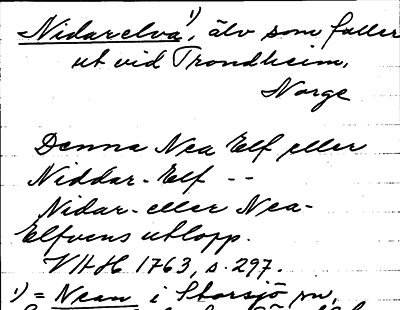 Nidarelva¹⁾, älv som faller
ut vid Trondheim,
Norge
Denna Nea Elf eller
Niddar-Elf --
Nidar- eller Nea-
Elfvens utlopp.
VHH 1763, s. 297.
¹⁾ = Nean i Storsjö sn,